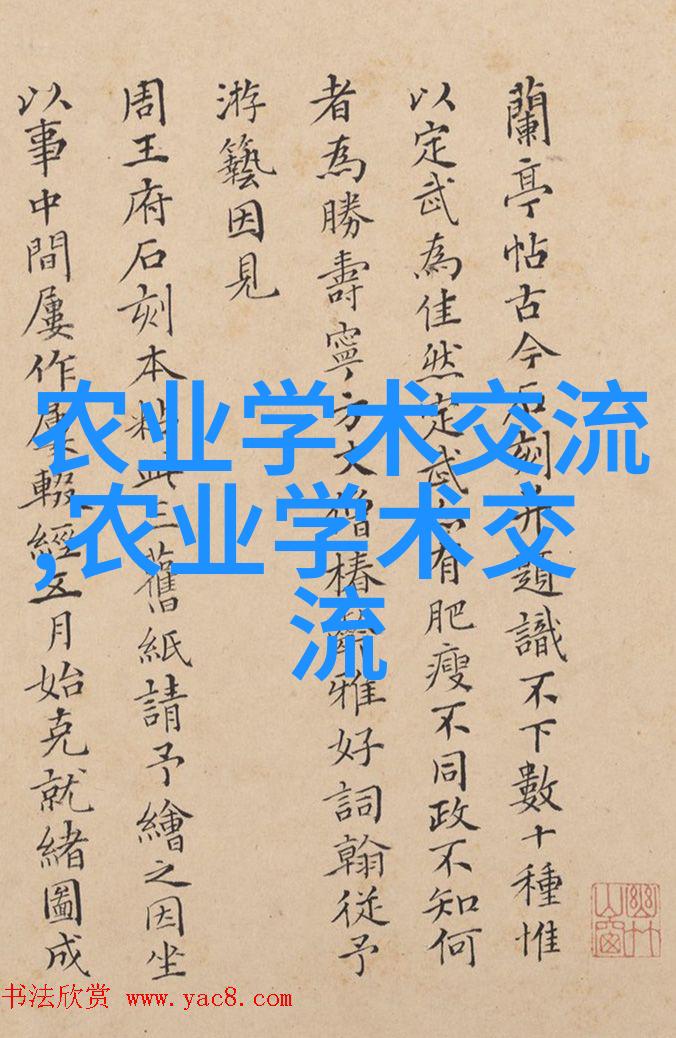 蘭亭帖古今石刻并題識不下數十種惟
以定武為佳然定武有肥瘦不同政不知何
者為勝壽寧方丈僧椿雅好詞翰從予
游藝因見
周王府石刻本三舊紙請予繪之因坐
以事中間屢作屢輟經五月始克就緒圖成
农业学术交流
,农业学术交
流
幽竹
山窗
书法欣赏 www.yac8.com